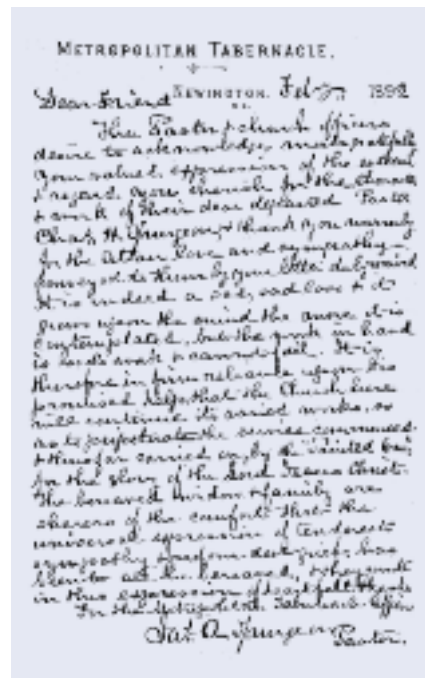 METROPOLITAN TABERNACLE.
NEWINGTON. Feb 1892
Dear Friend
The Pastor & church officers
desire to acknowledge most gratefully
your valued expression of the esteem
& regard you cherish for the character
& work of their dear departed Pastor
Chas. H. Spurgeon & thank you warmly
for the love and sympathy
conveyed to them by your letter duly
It is indeed a sad, sad loss & it
grows upon the mind the more it is
contemplated, but the work in hand
is God's work & cannot fail. It is
therefore in firm reliance upon his
promised help, that the Church here
will continue its varied works, so
as to perpetuate the service commenced
& thus far carried on, by the
for the glory of the Lord Jesus Christ.
The bereaved widow & family are
sharers of the comfort that the
universal expression of tenderest
sympathy & has
been to all the bereaved, & they unite
in this expression of heartfelt thanks
For the Metropolitan Tabernacle
Jas. A. Spurgeon
Pastor.